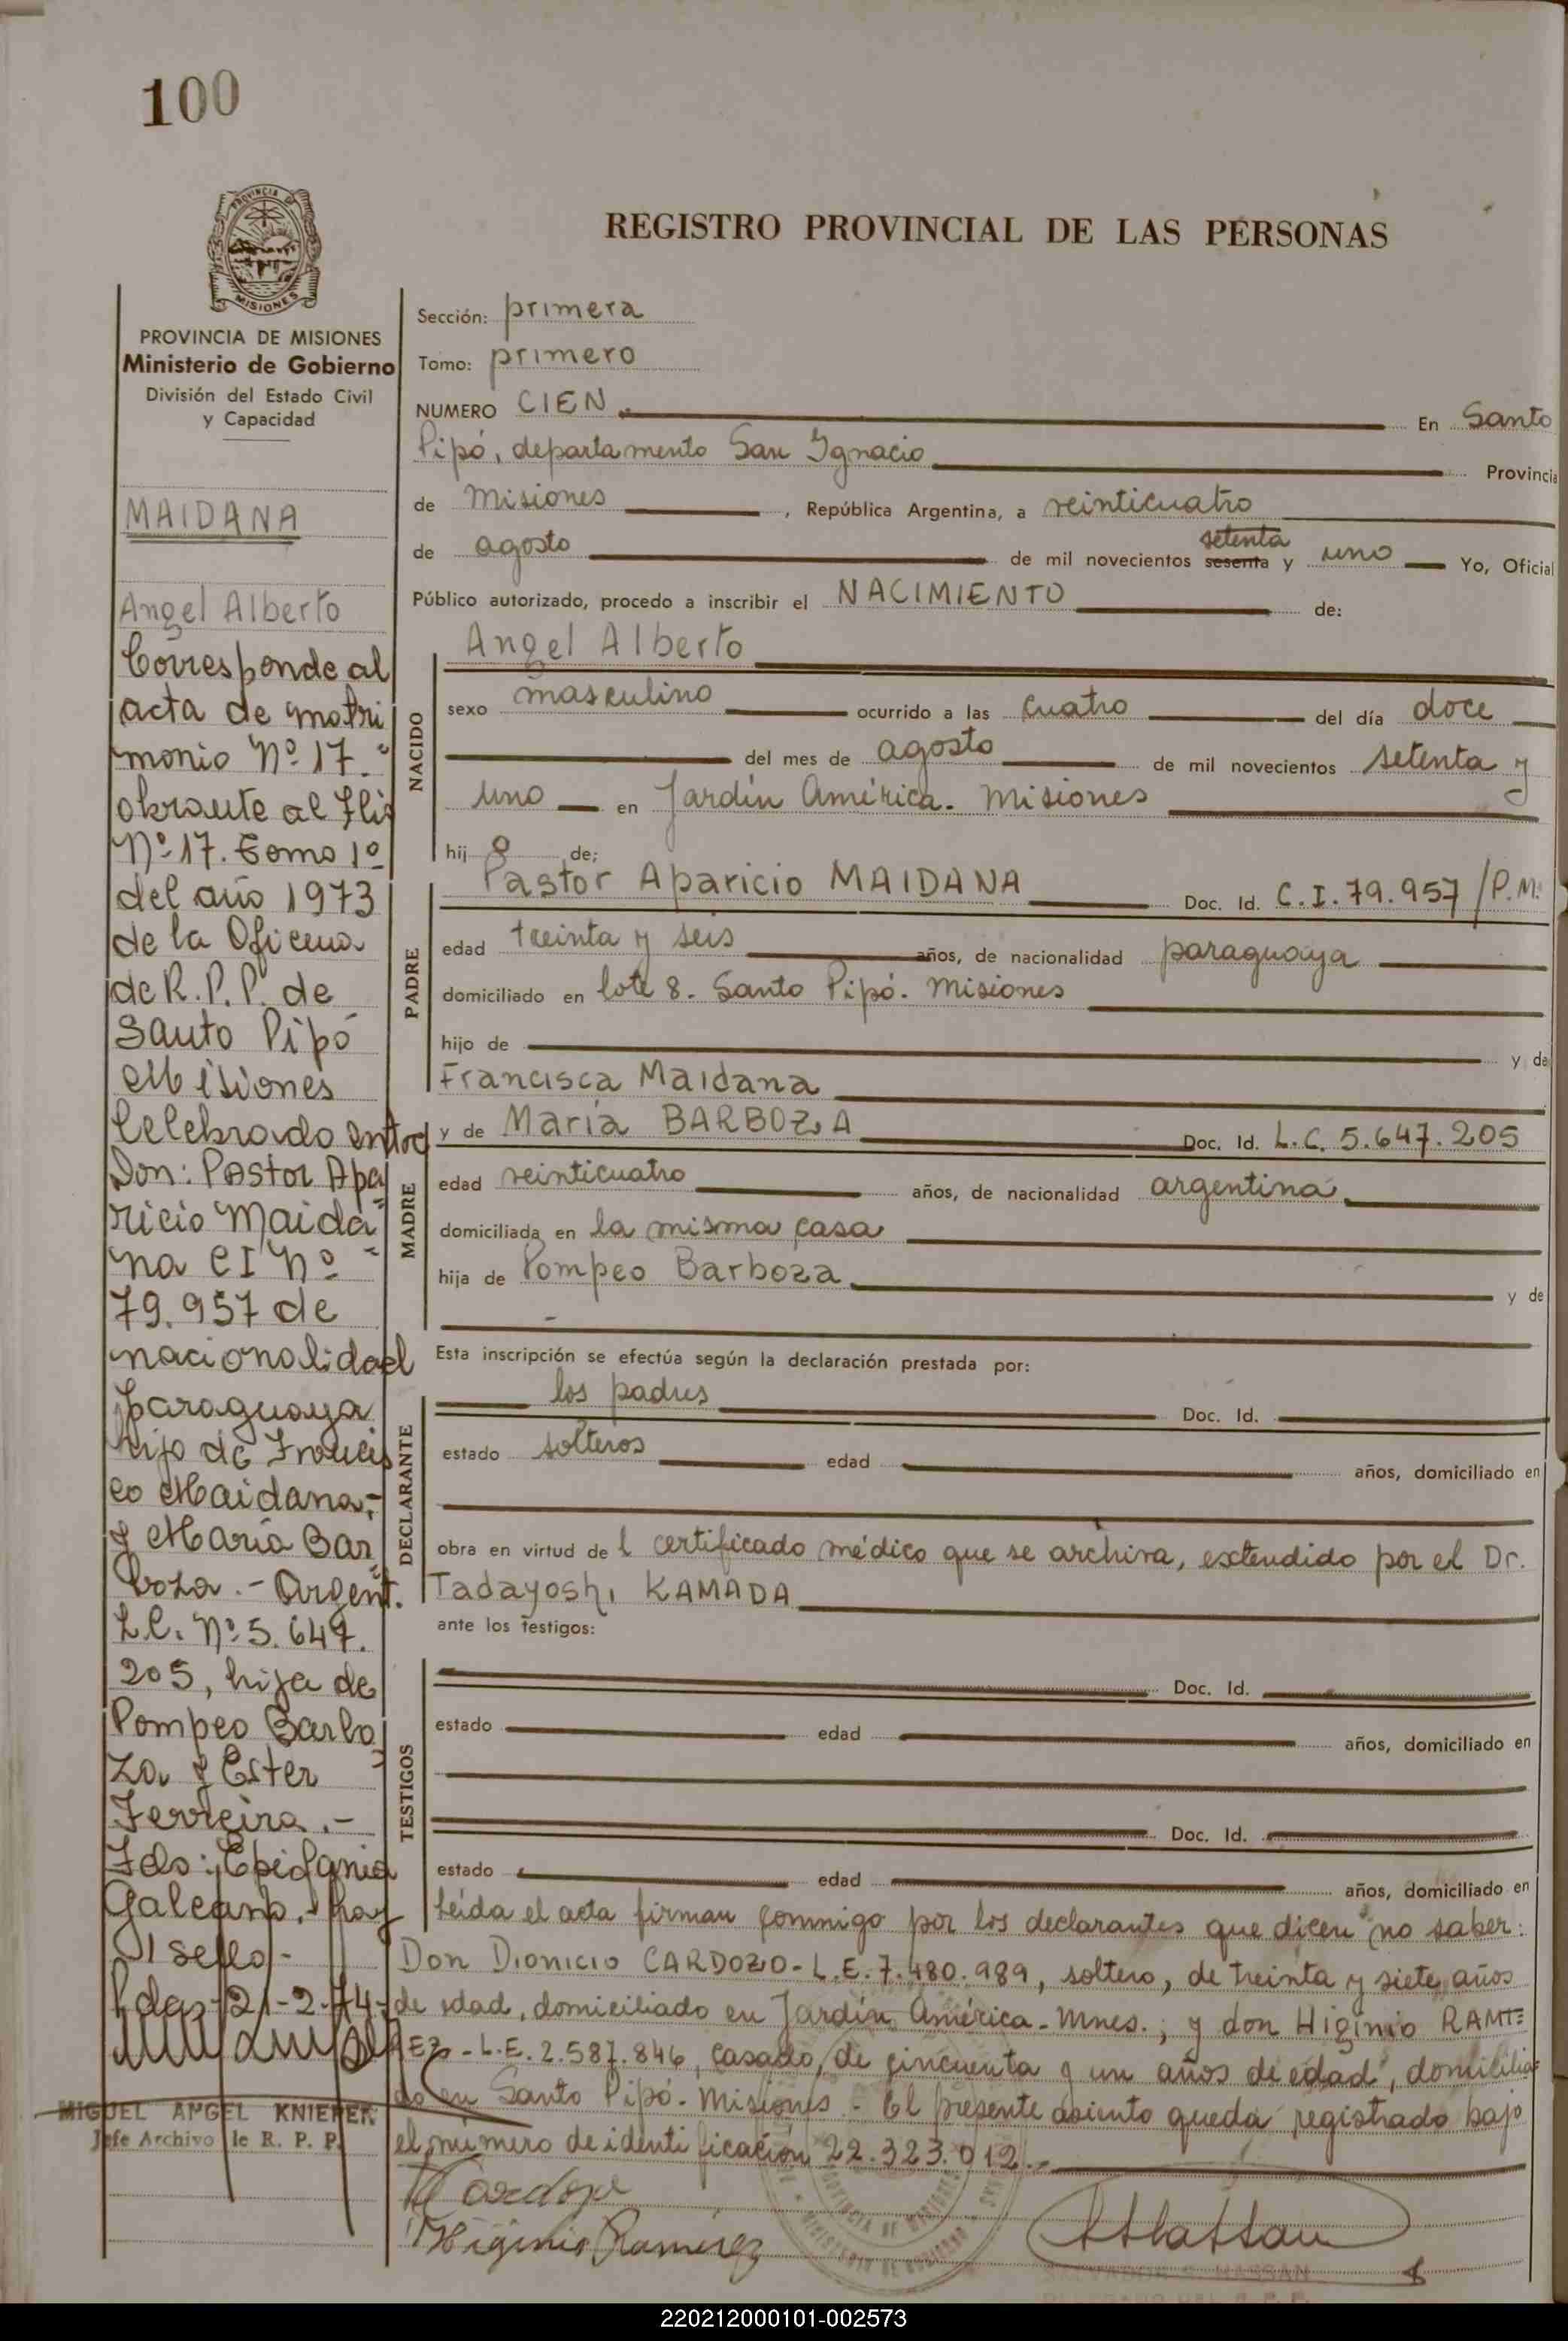 100
PROVINCIA DE
MISIONES
REGISTRO PROVINCIAL DE LAS PERSONAS
PROVINCIA DE MISIONES
Ministerio de Gobierno
División del Estado Civil
y Capacidad
MAIDANA
Angel Alberto
Corresponde al
acta de matri
monio Nº 17.
obrante al Flio
Nº 17. Tomo 1º
del año 1973
de la Oficina
de R. P. P. de
Santo Pipó
Misiones
Celebrado entre
Don: Pastor Apa
ricio Maida
na CI Nº
79.957 de
nacionalidad
paraguaya
hijo de Francis
co Maidana,-
y María Bar
boza.- Argent.
L.C. Nº 5.647.
205, hija de
Pompeo Barbo
za y Ester
Ferreira.-
Fdo: Epifania
Galeano. hay
1 sello.-
Pdas. 21-2-74-
MIGUEL ANGEL KNIEPER
Jefe Archivo de R. P. P.
Sección: primera
Tomo: primero
NUMERO CIEN En Santo
Pipó, departamento San Ignacio Provincia
de Misiones, República Argentina, a veinticuatro
setenta
de agosto de mil novecientos sesenta y uno Yo, Oficial
Público autorizado, procedo a inscribir el NACIMIENTO de:
Angel Alberto
NACIDO
sexo masculino ocurrido a las cuatro del día doce
del mes de agosto de mil novecientos setenta y
uno en Jardín América. Misiones
hijo de;
PADRE
Pastor Aparicio MAIDANA Doc. Id. C.I. 79.957/P.M.
edad treinta y seis años, de nacionalidad paraguaya
domiciliado en lote 8. Santo Pipó. Misiones
hijo de y de
Francisca Maidana
MADRE
y de María BARBOZA Doc. Id. L.C. 5.647.205
edad veinticuatro años, de nacionalidad argentina
domiciliada en la misma casa
hija de Pompeo Barboza y de
Esta inscripción se efectúa según la declaración prestada por:
DECLARANTE
los padres Doc. Id.
estado solteros edad años, domiciliado en
obra en virtud del certificado médico que se archiva, extendido por el Dr.
Tadayoshi KAMADA
ante los testigos:
TESTIGOS
Doc. Id.
estado edad años, domiciliado en
Doc. Id.
estado edad años, domiciliado en
Leída el acta firman conmigo por los declarantes que dicen no saber:
Don Dionicio CARDOZO - L.E. 7.480.989, soltero, de treinta y siete años
de edad, domiciliado en Jardín América - Mnes.; y don Higinio RAMI=
REZ - L.E. 2.587.846, casado, de cincuenta y un años de edad, domicilia=
do en Santo Pipó - Misiones.- El presente asiento queda registrado bajo
el número de identificación 22.323.012.-
Cardozo
Higinio Ramirez
HASSAN
220212000101-002573